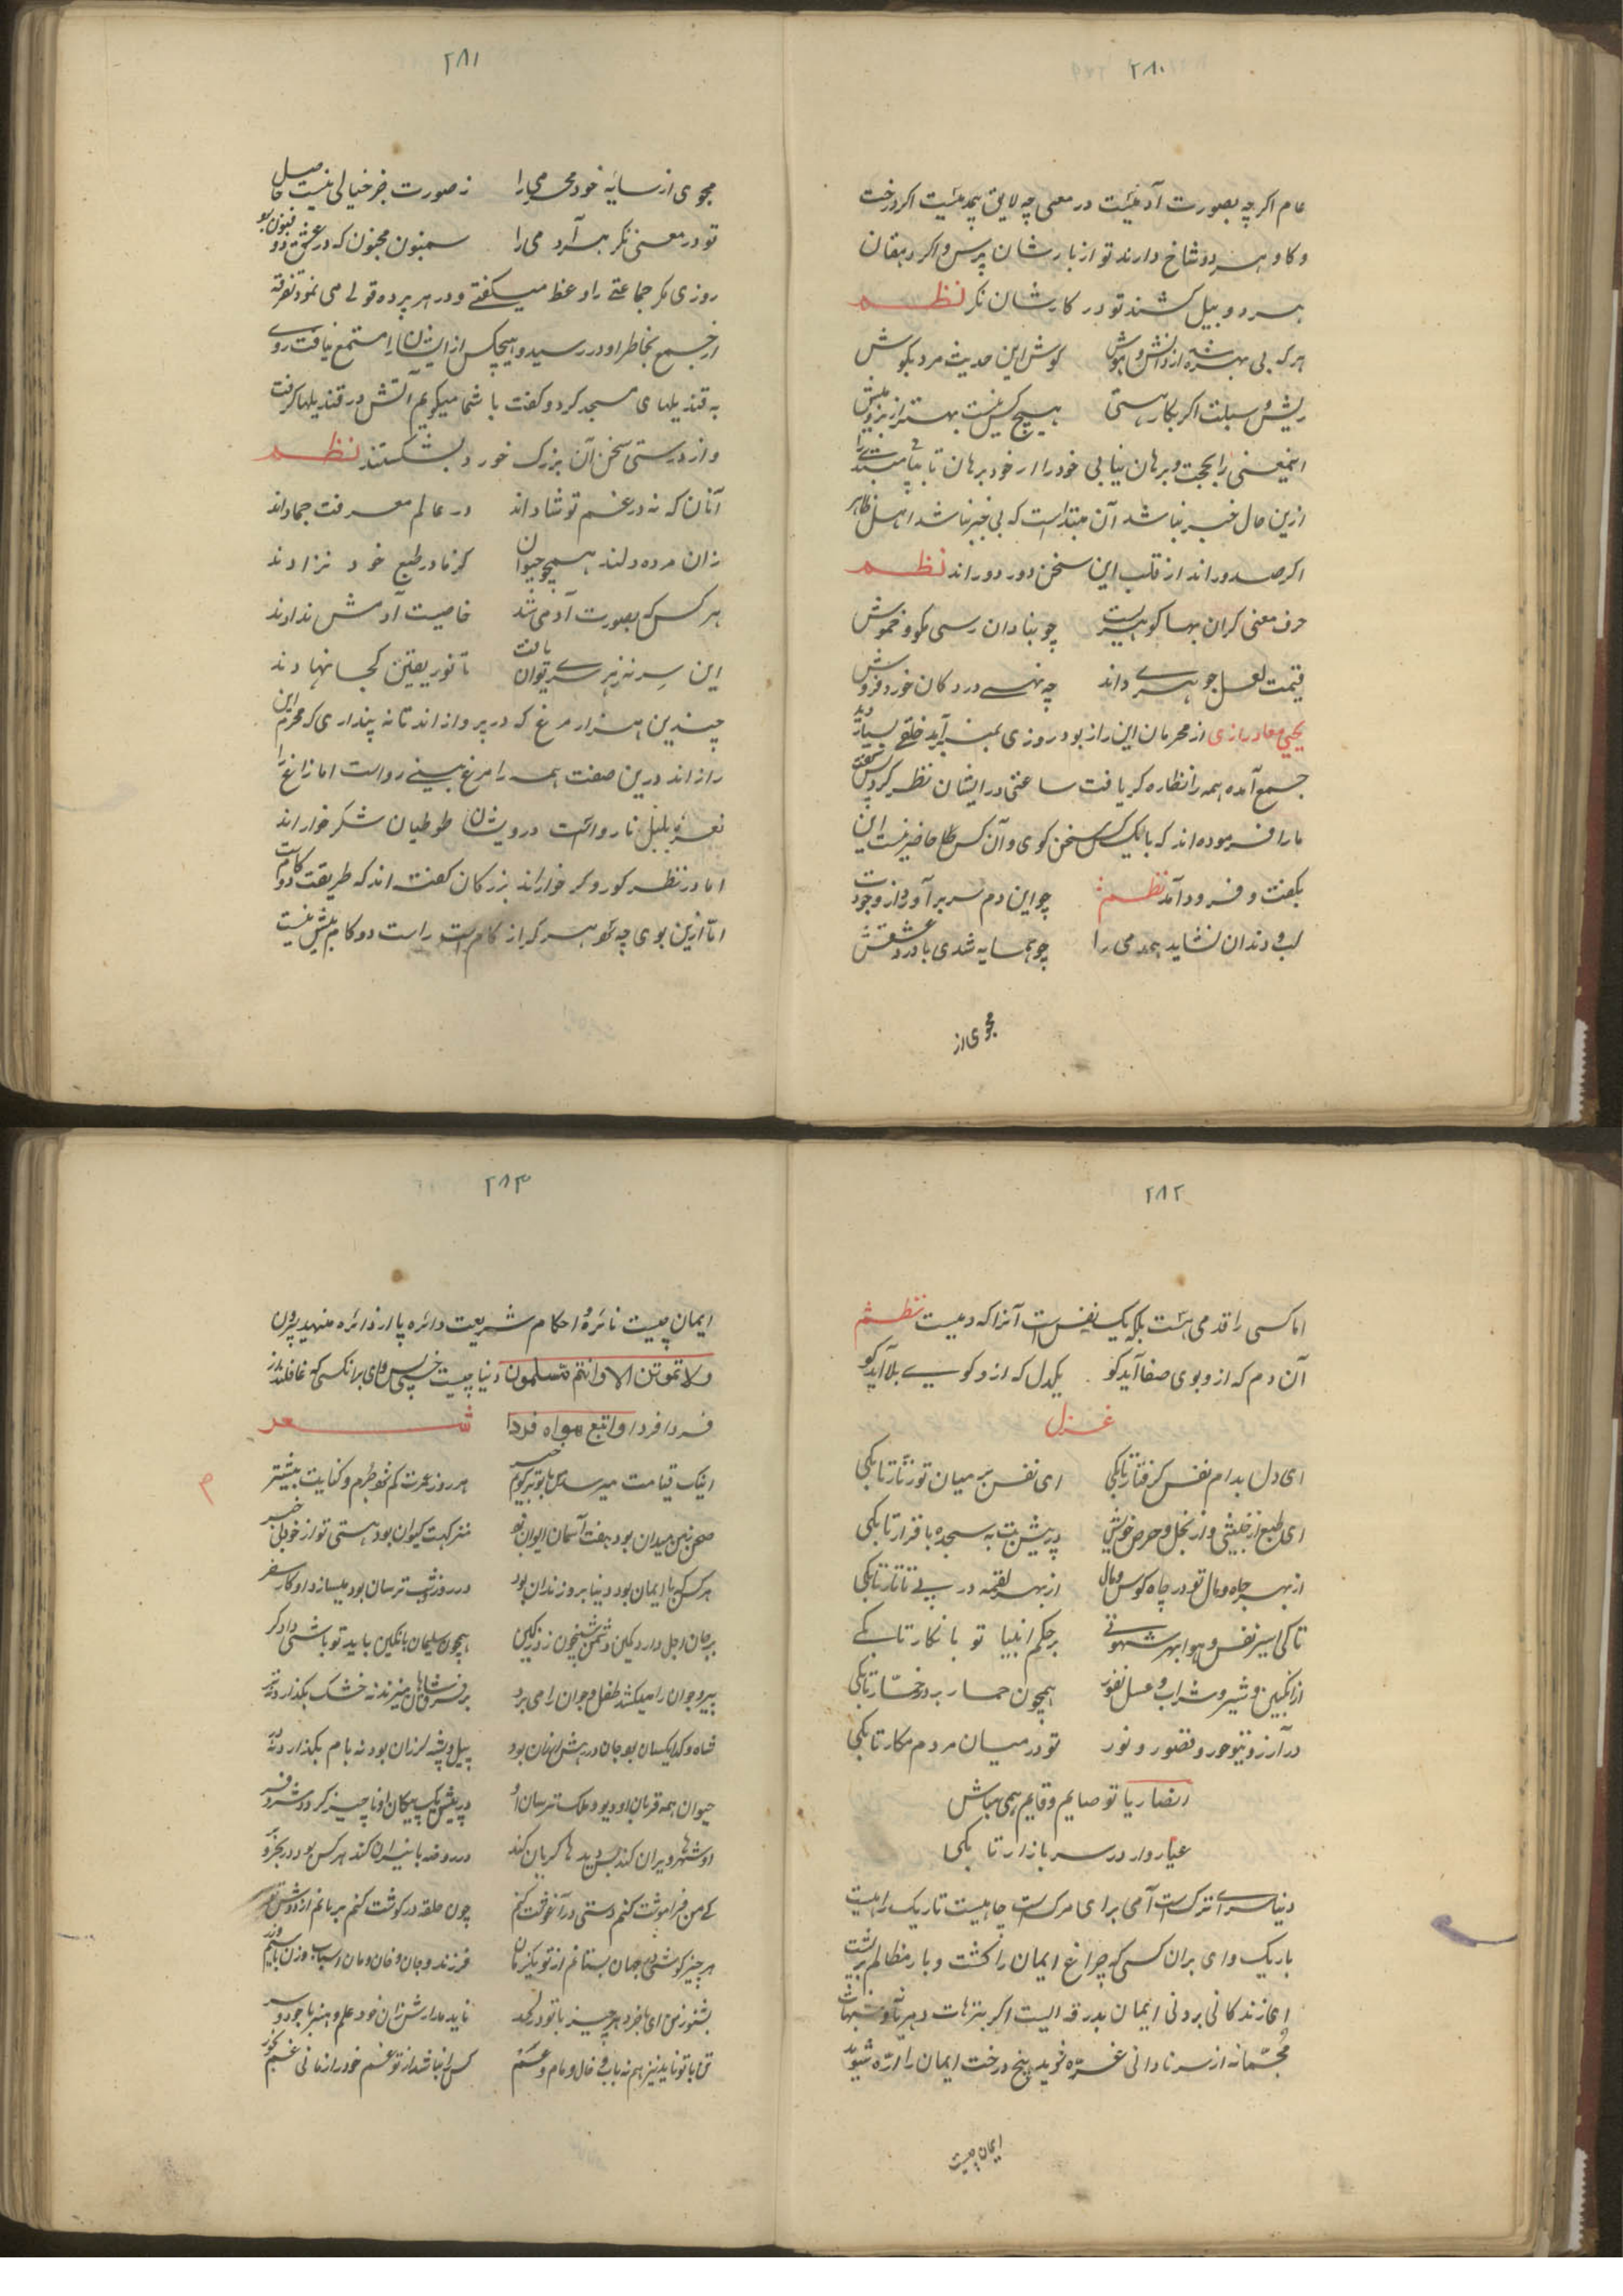 ۲۸۰
عام اگرچه بصورت آدمیست در معنی چه لایق همدمیست اگر درخت
و گاو هر دو شاخ دارند تو از بارشان پرس و اگر دهقان
هر دو بیل کشند تو در کارشان نکر نظم
هر که بی بهره شد از دانش و هوش گوش این حدیث مرد بگوش
ریش و سبلت اگر بکارستی هیچکس نیست بهتر از بز و میش
اینمعنی را بحجت و برهان نیابی خود را از خود برهان تا بیابی
ازین حال خبر نباشد آن مبتدا است که بی خبر نباشد اهل ظاهر
اگر صدوراند از قلب این سخن دور دوراند نظم
حرف معنی گران بها گوهریست چو بنادان رسی مگو و خموش
قیمت لعل جوهری داند چه نهی در دکان خورده فروش
یحیی معاذ رازی از محرمان این راز بود روزی بمنبر برآمد خلقی بسیار دید
جمع آمده همه را نظاره گر یافت ساعتی در ایشان نظر کرد پس گفت
ما را فرموده اند که با یک کس سخن گوی و آن کس حاضر نیست این
بگفت و فرود آمد نظم چو این دم سر برآورد از وجودت
لب و دندان نشاید همدمی را چو همسایه شدی با درد عشقش
مجوی از
۲۸۱
مجوی از سایه خود محرمی را ز صورت جز خیالی نیست حاصل
تو در معنی نگر هر آدمی را سمنون مجنون که در عشق ذو فنون بود
روزی مگر جماعتی را وعظ میگفتی و در هر پرده قولی می نمود تفرقه
از جمع بخاطر او در رسید و هیچکس از ایشان را مستمع نیافت روی
به قندیلهای مسجد کرد و گفت با شما میگویم آتش در قندیلها گرفت
و از درستی سخن آن بزرگ خورد بشکستند نظم
آنان که نه در غم تو شادند در عالم معرفت جمادند
زان مرده دلند همچو حیوان کز مادر طبع خود نزادند
هر کس که بصورت آدمی شد خاصیت آدمش ندادند
این سر نه ز هر سری توان یافت تا نور یقین کجا نهادند
چندین هزار مرغ که در پروازاند تا نه پنداری که محرم این
رازاند درین صفت همه را مرغ بینی رواست اما زاغ را
نعره بلبل نارواست درویشان طوطیان شکر خواراند
اما در نظر کور و کر خواراند بزرگان گفته اند که طریقت دو گامست
اما ازین بوی چه شو هر که از کام است راست دو گام بیش نیست
۲۸۲
اما کسی را قدمی هست بلکه یک نفس است آنرا که دمیست نظم
آن دم که ازو بوی صفا آید کو یکدل که ازو گوی بلا آید کو
غزل
ای دل بدام نفس گرفتار تا بکی ای نفس بر میان تو زنار تا بکی
ای طبع از خبیثی و از بخل و حرص خویش در پیش بت به سجده باقرار تا بکی
از بهر جاه و مال تو در چاه کوس ومال از بهر لقمه در پی تاتار تا بکی
تا کی اسیر نفس و هوا بهر شهوتی بر حکم انبیا تو بانکار تا بکی
از انگبین و شیر و شراب و عسل نفور همچون حمار بر در خمار تا بکی
در آرزو نبیو حور و قصور و نور تو در میان مردم مکار تا بکی
انصاریا تو صایم و قایم همی مباش
عیار وار در سر بازار تا بکی
دنیا سرای ترک است آدمی برای مرگ است چاهیست تاریک راهیست
باریک وای بران کس که چراغ ایمان را کشت و بار مظالم بر پشت
ای زندگانی بردنی ایمان بدرقه ایست اگر بنزهات و شبهات
مجتمانه از سر نادانی غره شوید بیخ درخت ایمان را اره شوید
ایمان چیست
۲۸۳
ایمان چیست نائره و احکام شریعت دائره پا از دائره منهید بیرون
ولا تموتن الا وانتم مسلمون دنیا چیست خسی وای بر انکس که غافلند از
فردا فردا واتبع هواه فردا شعر
اینک قیامت میرسد من با تو میگویم خبر هر روز عمرت کم شود جرم و گناهت بیشتر
صحن زمین میدان بود هفت آسمان ایوان بود منزلگهت کیوان بود هستی تو از خود بی خبر
هر کس که با ایمان بود دنیا برو زندان بود در روز و شب ترسان بود میسازد او کار سفر
بر جان اجل دارد کمین دشمن شبیخون زد زکین همچون سلیمان با نگین باید تو باشی دادگر
پیر و جوان را میکشد طفل و جوان را می برد بر فرق شاهان میزند نه خشک بگذارد نه تر
شاه و گدا یکسان بود جان در بهش لرزان بود پیل و پشه لرزان بود نه بام بگذارد نه در
حیوان همه قربان او دیو و ملک ترسان او در پیش یک پیکان او ناچیز گردد شیر نر
او شهرها ویران کند بس دیده ها گریان کند در روضه با نیران کند هر کس بود در بحر و بر
کی من فراموشت کنم دستی در آغوشت کنم چون حلقه در گوشت کنم بربایم از دوش تو سر
هر چیز کوشی در جهان بستانم از تو یکزمان فرزند و جان و خان و مان اسباب و زن با سیم و زر
بشنو ز من ای باخرد هر چیز با تو در لحد ناید مدارش زان خود علم و هنر با جود و سر
نی با تو ناید نیز هم نه باب و خال و مام و عم کس را نباشد از تو غم خود را زمانی غم بخور
م